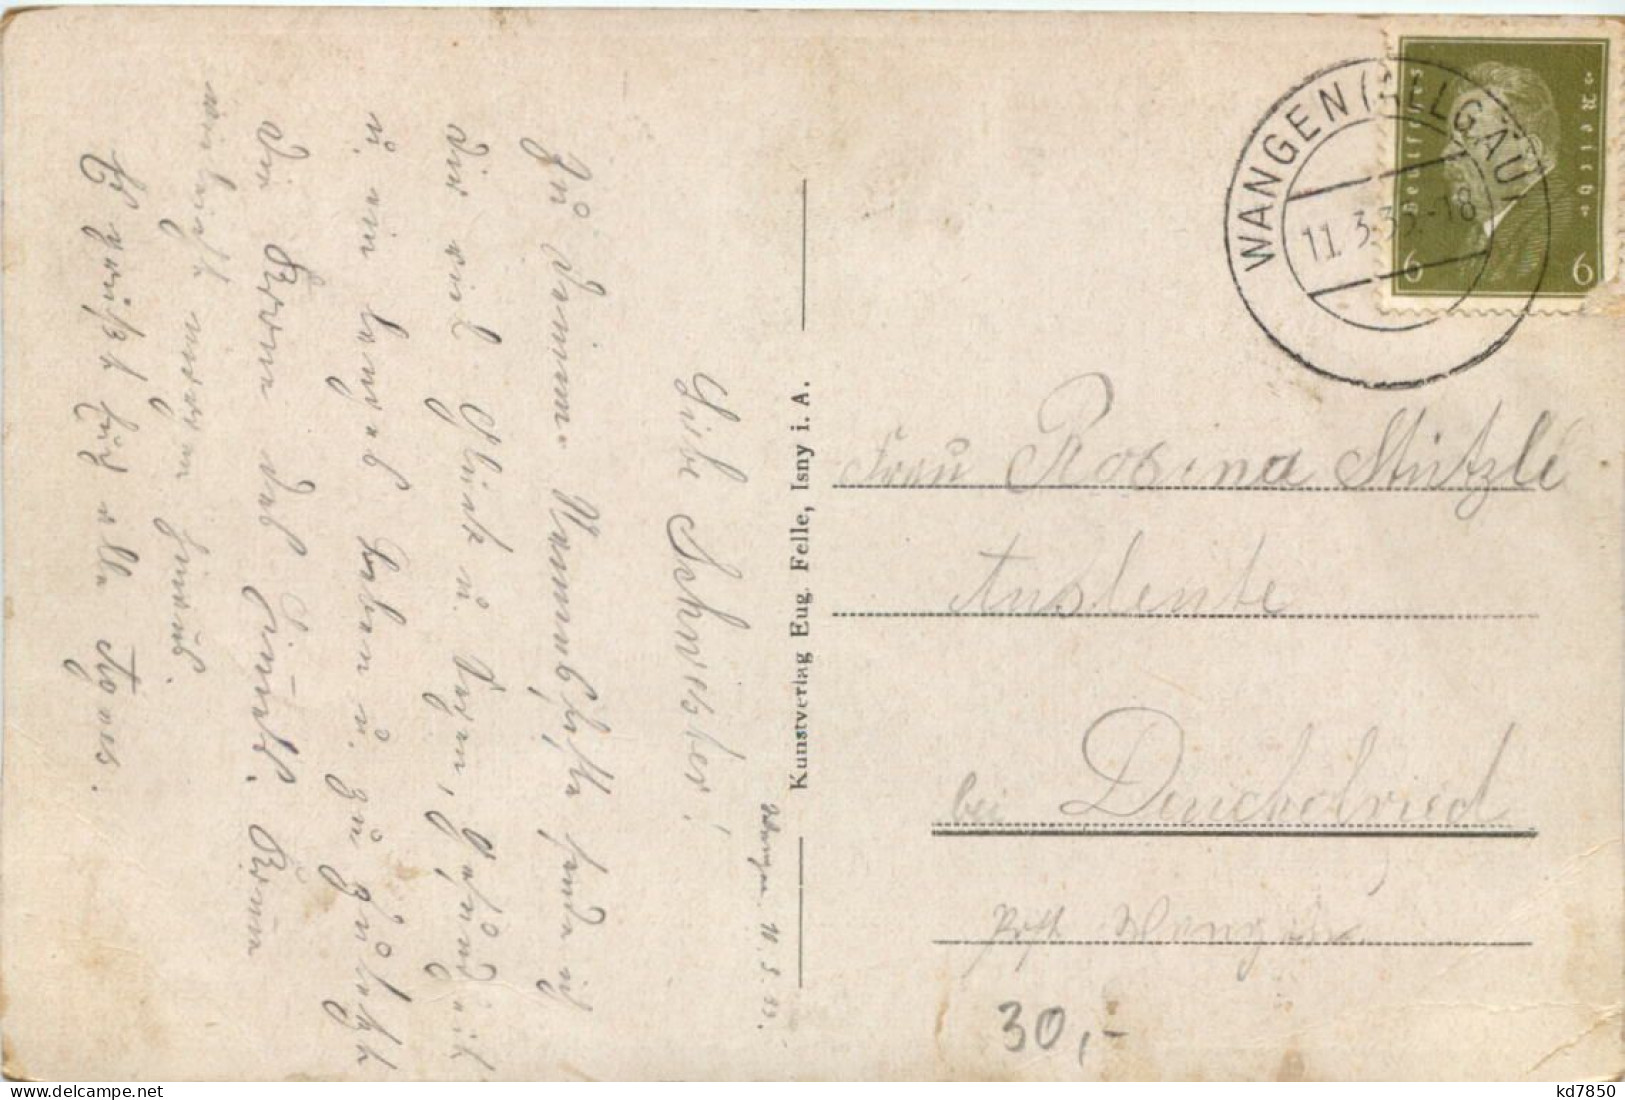 Wangen 10.3.33.
Liebe Schwester!
Zu Deinem Namensfeste sende ich
dir viel Glück u. Segen, Gesundheit
u. ein langes Leben u. zu guter letzt
die Krone des Himmels.
vielleicht morgen
Es grüßt Euch alle Agnes.
Kunstverlag Eug. Felle, Isny i. A.
WANGEN (ALLGÄU)
11.3.33.-18
Deutsches Reich
6 6
Frau Rosina Stützle
bei Deuchelried
Post Wangen
30,-
kd7850